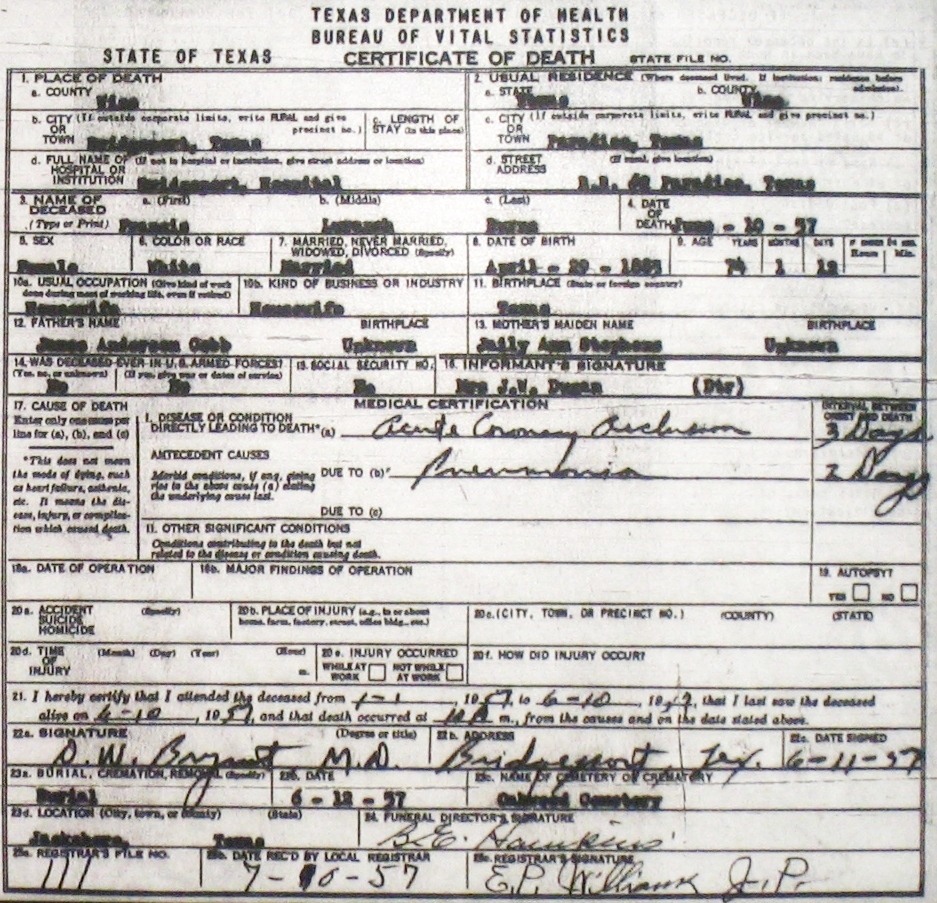 TEXAS DEPARTMENT OF HEALTH
BUREAU OF VITAL STATISTICS
STATE OF TEXAS CERTIFICATE OF DEATH STATE FILE NO.
1. PLACE OF DEATH 2. USUAL RESIDENCE (Where deceased lived. If institution: residence before admission).
a. COUNTY Wise a. STATE Texas b. COUNTY Wise
b. CITY (If outside corporate limits, write RURAL and give precinct no.) OR TOWN Bridgeport, Texas c. LENGTH OF STAY (in this place) c. CITY (If outside corporate limits, write RURAL and give precinct no.) OR TOWN Paradise, Texas
d. FULL NAME OF (If not in hospital or institution, give street address or location) HOSPITAL OR INSTITUTION Bridgeport, Hospital d. STREET ADDRESS (If rural, give location) R.R. #2 Paradise, Texas
3. NAME OF DECEASED (Type or Print) a. (First) Francis b. (Middle) c. (Last) Burns 4. DATE OF DEATH June - 10 - 57
5. SEX Female 6. COLOR OR RACE White 7. MARRIED, NEVER MARRIED, WIDOWED, DIVORCED (Specify) Married 8. DATE OF BIRTH April - 29 - 1883 9. AGE YEARS 74 MONTHS 1 DAYS 12 IF UNDER 24 HRS. Hours Min.
10a. USUAL OCCUPATION (Give kind of work done during most of working life, even if retired) Housewife 10b. KIND OF BUSINESS OR INDUSTRY Housewife 11. BIRTHPLACE (State or foreign country) Texas
12. FATHER'S NAME James Anderson Cobb BIRTHPLACE Unknown 13. MOTHER'S MAIDEN NAME Ann Stephens BIRTHPLACE Unknown
14. WAS DECEASED EVER IN U.S. ARMED FORCES? (Yes, no, or unknown) No (If yes, give war or dates of service) No 15. SOCIAL SECURITY NO. No 16. INFORMANT'S SIGNATURE Mrs J.W. (Dtr)
MEDICAL CERTIFICATION
17. CAUSE OF DEATH Enter only one cause per line for (a), (b), and (c)
*This does not mean the mode of dying, such as heart failure, asthenia, etc. It means the disease, injury, or complication which caused death.
INTERVAL BETWEEN ONSET AND DEATH
I. DISEASE OR CONDITION DIRECTLY LEADING TO DEATH* (a) Acute Coronary Occlusion 3 Days
ANTECEDENT CAUSES
Morbid conditions, if any, giving rise to the above cause (a) stating the underlying cause last. DUE TO (b) Pneumonia 2 Days
DUE TO (c)
II. OTHER SIGNIFICANT CONDITIONS
Conditions contributing to the death but not related to the disease or condition causing death.
18a. DATE OF OPERATION 18b. MAJOR FINDINGS OF OPERATION 19. AUTOPSY? YES NO
20a. ACCIDENT SUICIDE HOMICIDE (Specify) 20b. PLACE OF INJURY (e.g., in or about home, farm, factory, street, office bldg., etc.) 20c. (CITY, TOWN, OR PRECINCT NO.) (COUNTY) (STATE)
20d. TIME OF INJURY (Month) (Day) (Year) (Hour) m. 20e. INJURY OCCURRED WHILE AT WORK NOT WHILE AT WORK 20f. HOW DID INJURY OCCUR?
21. I hereby certify that I attended the deceased from 1-1, 1957, to 6-10, 1957, that I last saw the deceased
alive on 6-10, 1957, and that death occurred at m., from the causes and on the date stated above.
22a. SIGNATURE (Degree or title) 22b. ADDRESS 22c. DATE SIGNED
D.W. Bryant M.D. Bridgeport Tex. 6-11-57
23a. BURIAL, CREMATION, REMOVAL (Specify) 23b. DATE 23c. NAME OF CEMETERY OR CREMATORY
Burial 6 - 12 - 57 Cemetery
23d. LOCATION (City, town, or county) (State) 24. FUNERAL DIRECTOR'S SIGNATURE
Jacksboro, Texas B.E. Hawkins
25a. REGISTRAR'S FILE NO. 25b. DATE REC'D BY LOCAL REGISTRAR 25c. REGISTRAR'S SIGNATURE
111 7-10-57 E.P. Williams J.P.